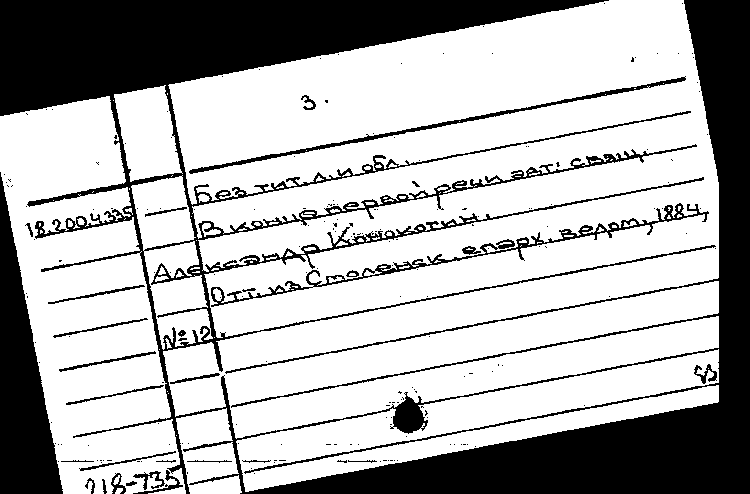 3.
Без тит. л. и обл.
18.200.4.335
В конце первой речи авт: свящ.
Александр Конокотин.
Отт. из Смоленск. епарх. ведом, 1884,
№ 12.
218-735